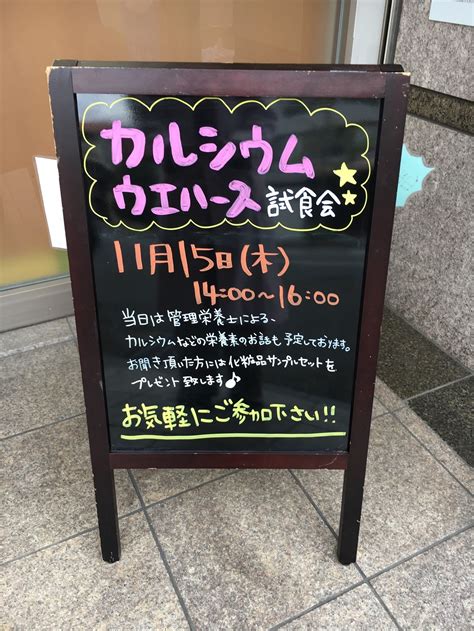 カルシウム
ウエハース 試食会
11月15日(木)
14:00〜16:00
当日は管理栄養士による、
カルシウムなどの栄養素のお話も予定しております。
お聞き頂いた方には化粧品サンプルセットを
プレゼント致します♪
お気軽にご参加下さい!!